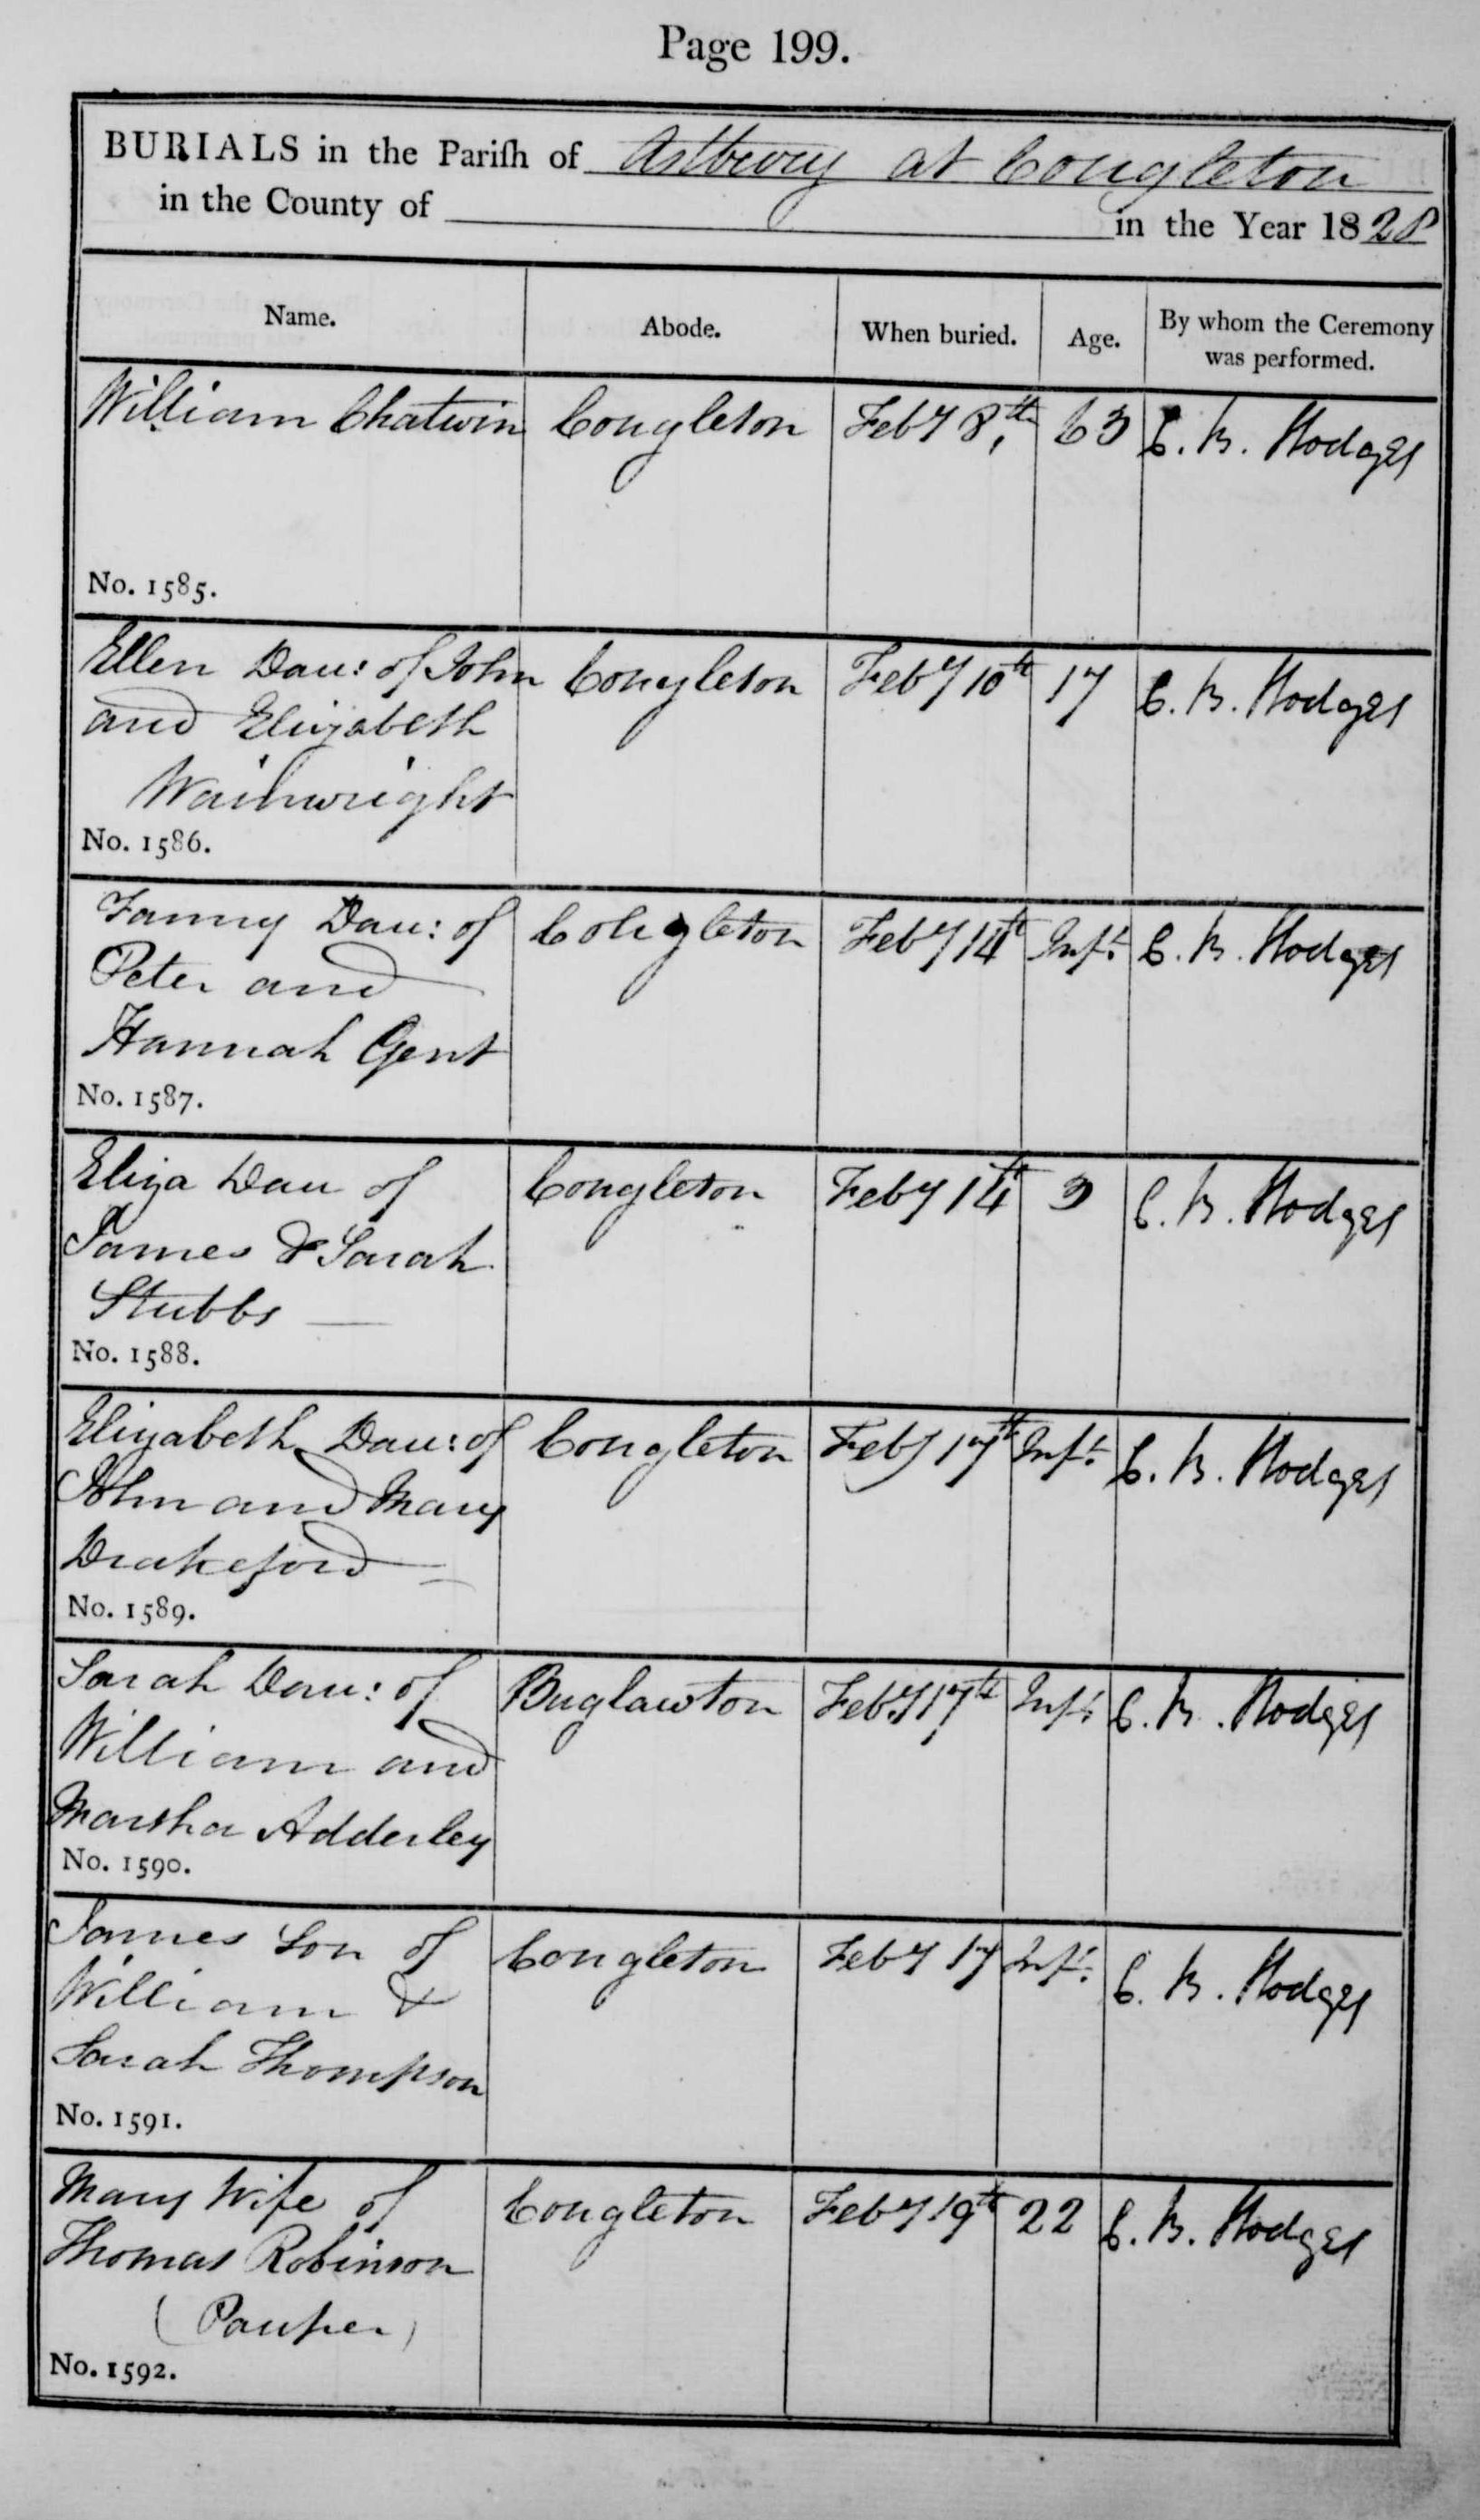 Page 199.
BURIALS in the Pariſh of Astbury at Congleton
in the County of in the Year 1828
Name.
Abode.
When buried.
Age.
By whom the Ceremony
was performed.
William Chatwin
Congleton
Feby 8th
63
C. B. Hodges
No. 1585.
Ellen Dau: of John
and Elizabeth
Wainwright
Congleton
Feby 10th
17
C. B. Hodges
No. 1586.
Fanny Dau: of
Peter and
Hannah Gent
Congleton
Feby 14th
Inft.
C. B. Hodges
No. 1587.
Eliza Dau of
James & Sarah
Stubbs
Congleton
Feby 14th
3
C. B. Hodges
No. 1588.
Elizabeth Dau: of
John and Mary
Drakeford
Congleton
Feby 17th
Inft.
C. B. Hodges
No. 1589.
Sarah Dau: of
William and
Martha Adderley
Buglawton
Feby 17th
Inft.
C. B. Hodges
No. 1590.
James Son of
William &
Sarah Thompson
Congleton
Feby 17
Inft.
C. B. Hodges
No. 1591.
Mary Wife of
Thomas Robinson
(Pauper)
Congleton
Feby 19th
22
C. B. Hodges
No. 1592.